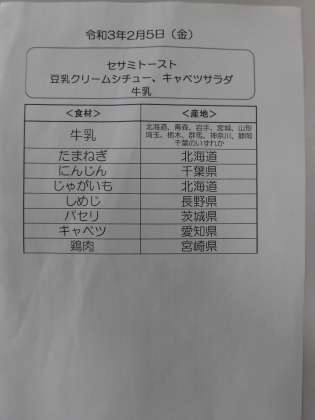 令和3年2月5日（金）
セサミトースト
豆乳クリームシチュー、キャベツサラダ
牛乳
＜食材＞ ＜産地＞
牛乳 北海道、青森、岩手、宮城、山形
埼玉、栃木、群馬、神奈川、静岡
千葉のいずれか
たまねぎ 北海道
にんじん 千葉県
じゃがいも 北海道
しめじ 長野県
パセリ 茨城県
キャベツ 愛知県
鶏肉 宮崎県